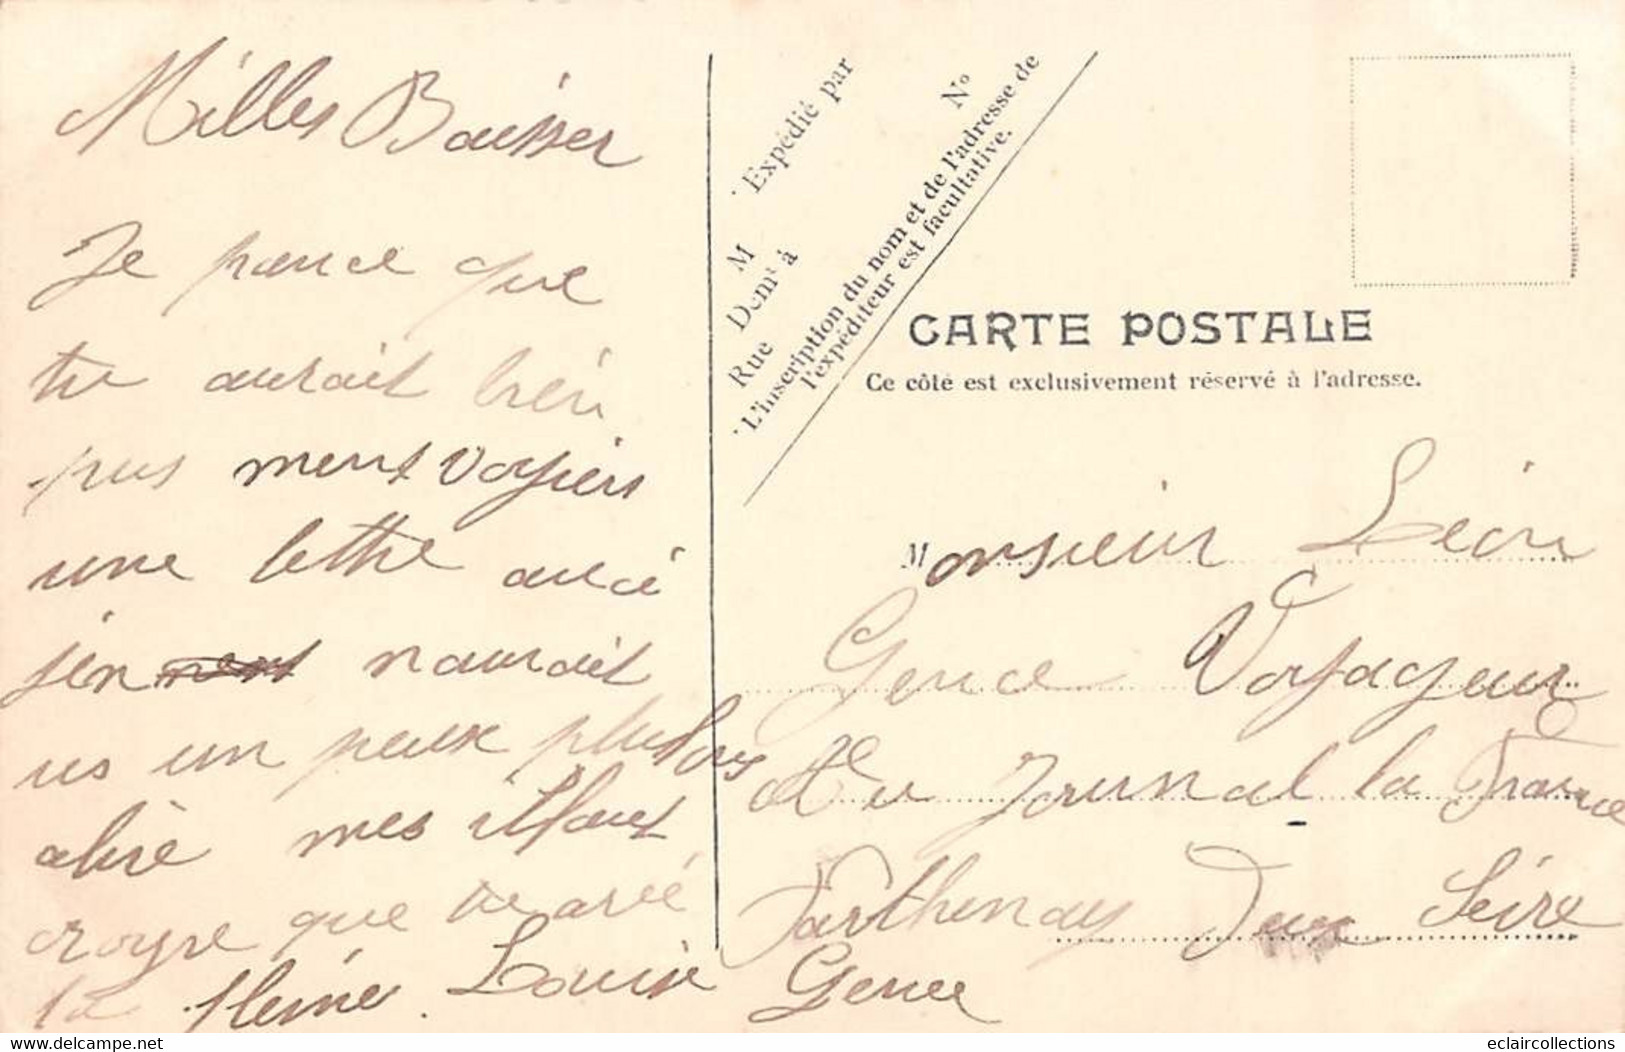 Milles Baisser
Je pance que
tu aurait bien
pus ment voyiers
une lettre avec
j'en naurait
us un peux plus long
alire mes ilfaut
croyre que tu avé
la fleme. Louise Gence
Expédié par
M
Demt à
Rue No
L'inscription du nom et de l'adresse de
l'expéditeur est facultative.
CARTE POSTALE
Ce côté est exclusivement réservé à l'adresse.
Monsieur Léon
Gence Voyageur
Du Journal la France
Parthenay Deux Seivre
eclaircollections